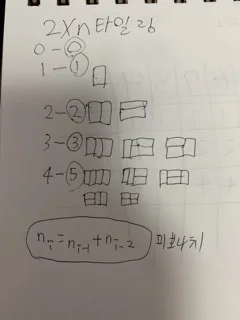 2×n타일링
0-0
1-①
2-②
3-③
4-⑤
n_i=n_{i-1}+n_{i-2} 피보나치